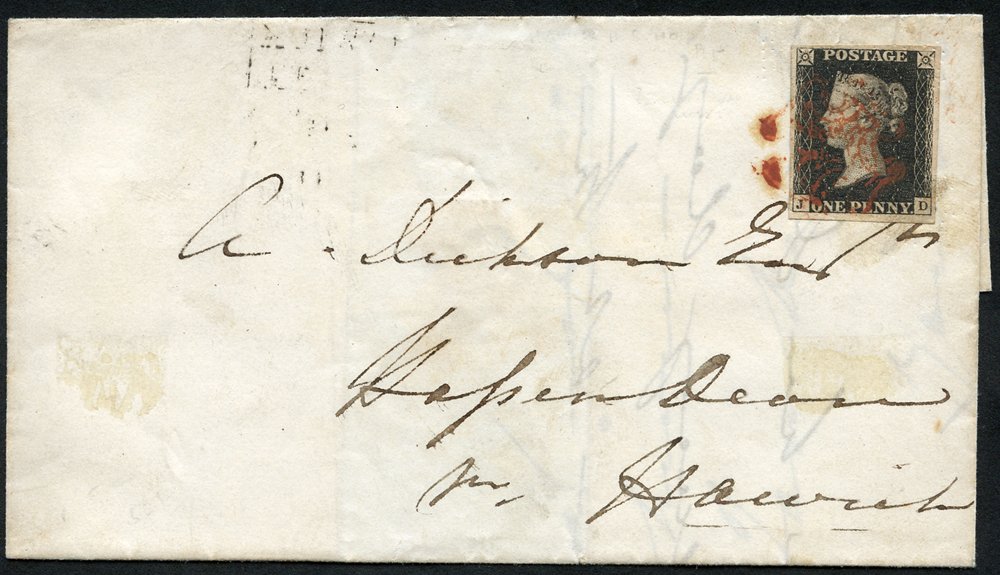 POSTAGE
J ONE PENNY. D
A. Dickson Esqr
Hassendean
by Hawick